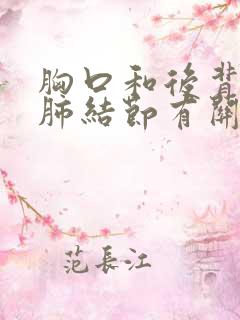 胸口和後背
肺結節有關
范長江